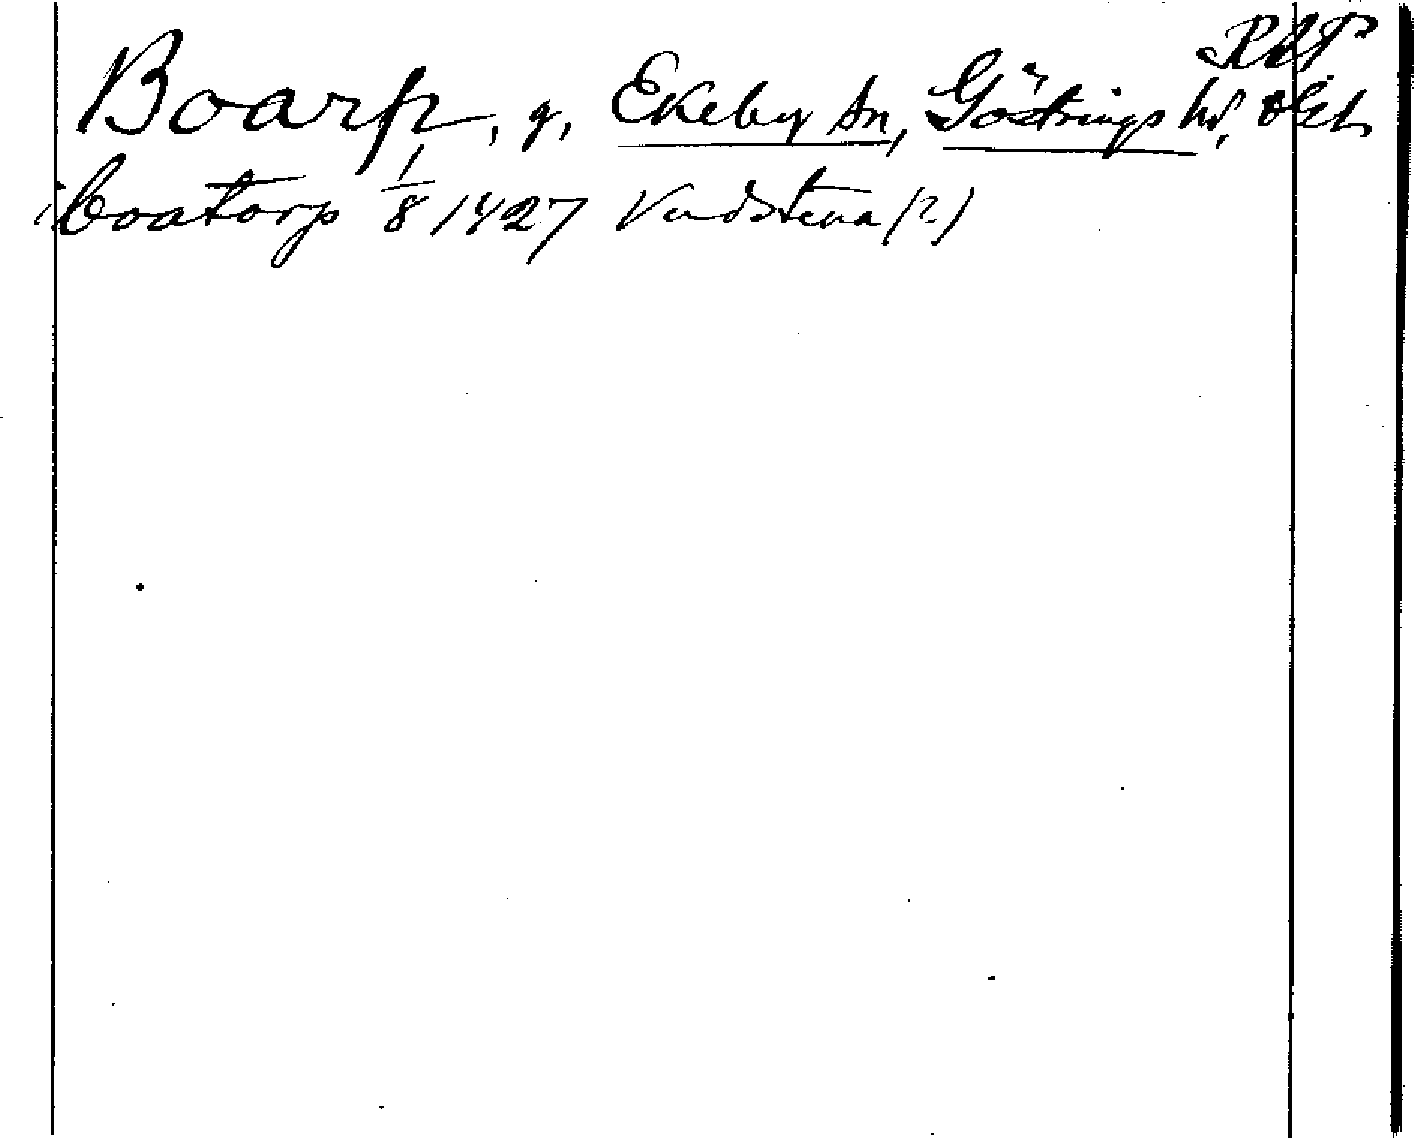 RAP
Boarp, g, Ekeby sn, Göstrings hd, ÖGtl.
i boatorp 1/8 1427 Vadstena (?)